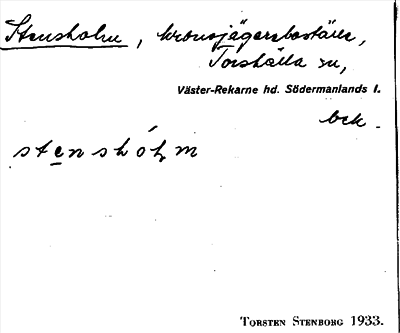 Stensholm, kronojägareboställe,
Torshälla sn,
Väster-Rekarne hd. Södermanlands l.
bek.
stenshólm
TORSTEN STENBORG 1933.